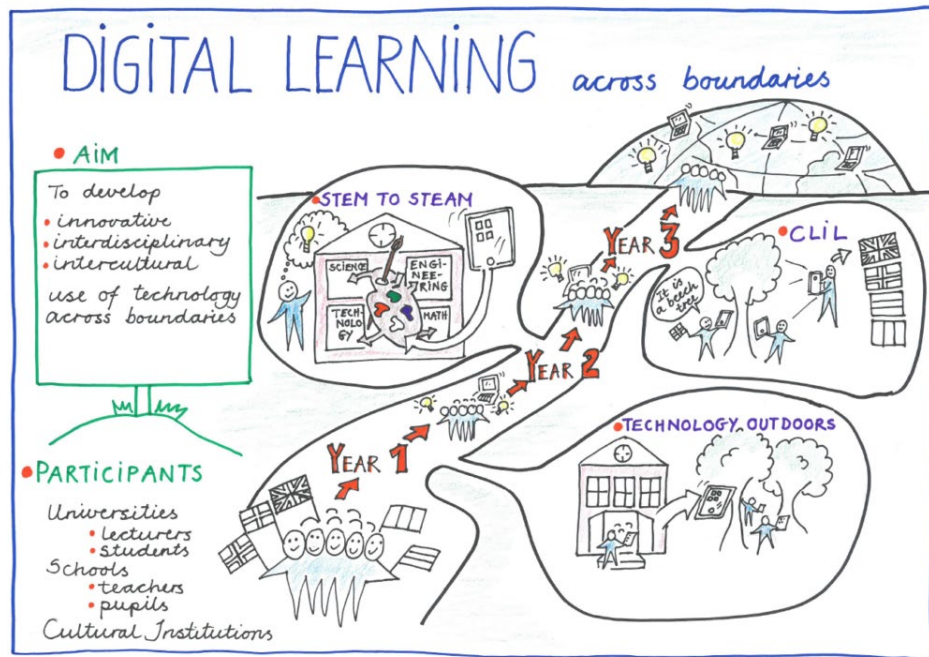 DiGiTAL LEARNiNG across boundaries
AiM
To develop
• innovative
• interdisciplinary
• intercultural
use of technology
across boundaries
PARTiCiPANTS
Universities
• lecturers
• students
Schools
• teachers
• pupils
Cultural Institutions
STEM TO STEAM
SCIENCE
ENGI-
NEE-
RING
TECH-
NOLO-
GY
MATH
YEAR 1
TECHNOLOGY OUTDOORS
YEAR 2
YEAR 3
CLiL
It is
a beech
tree